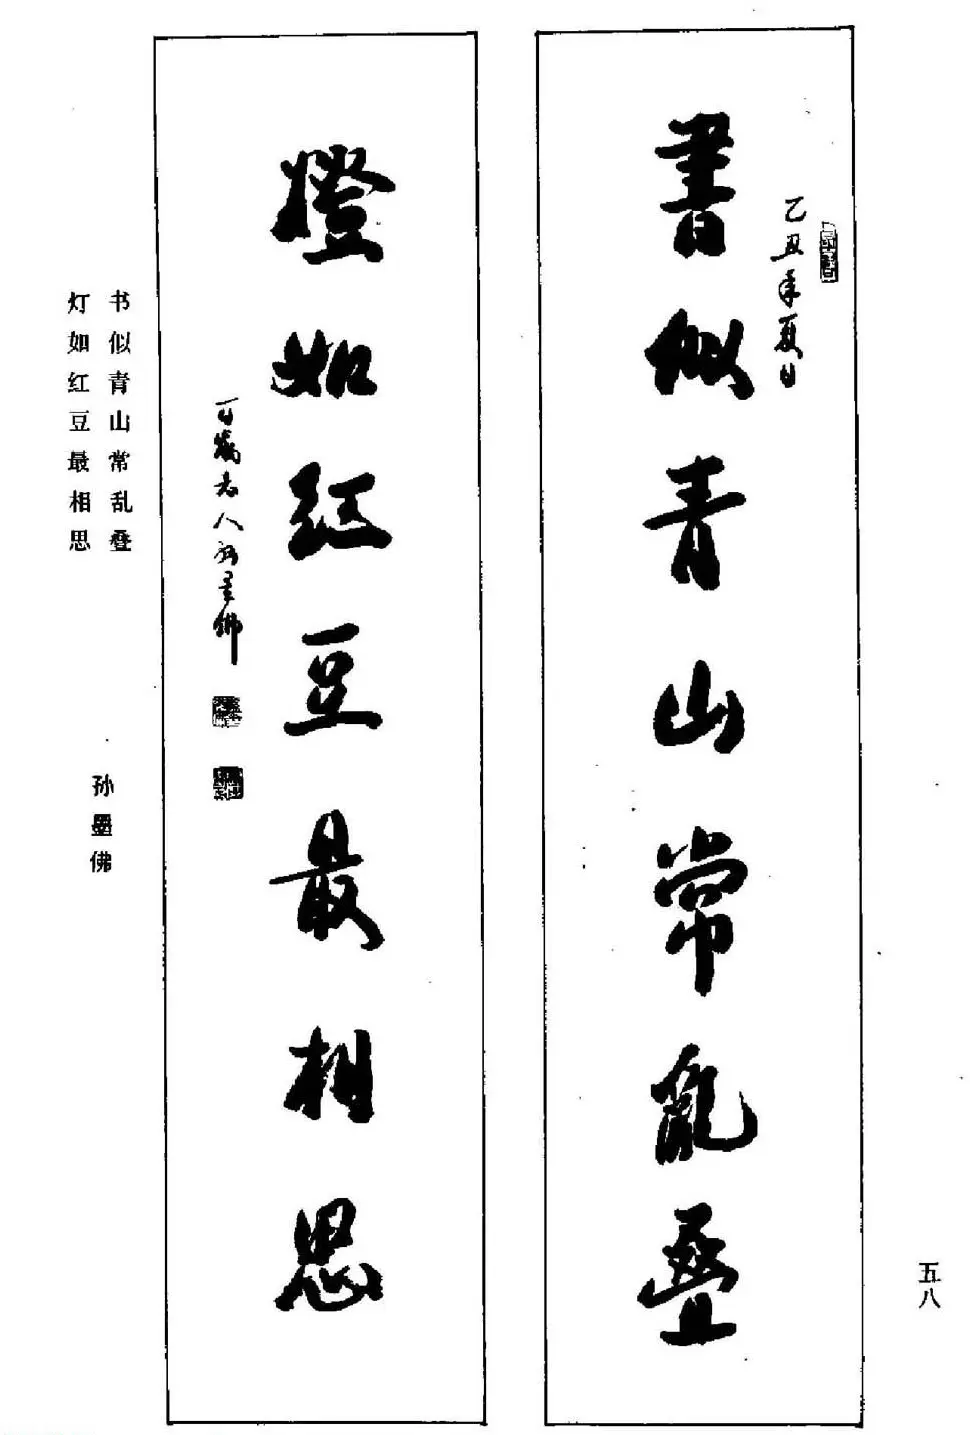 書似青山常亂疊
乙丑年夏日
燈如紅豆最相思
百歲老人孫墨佛
书似青山常乱叠
灯如红豆最相思
孙墨佛
五八